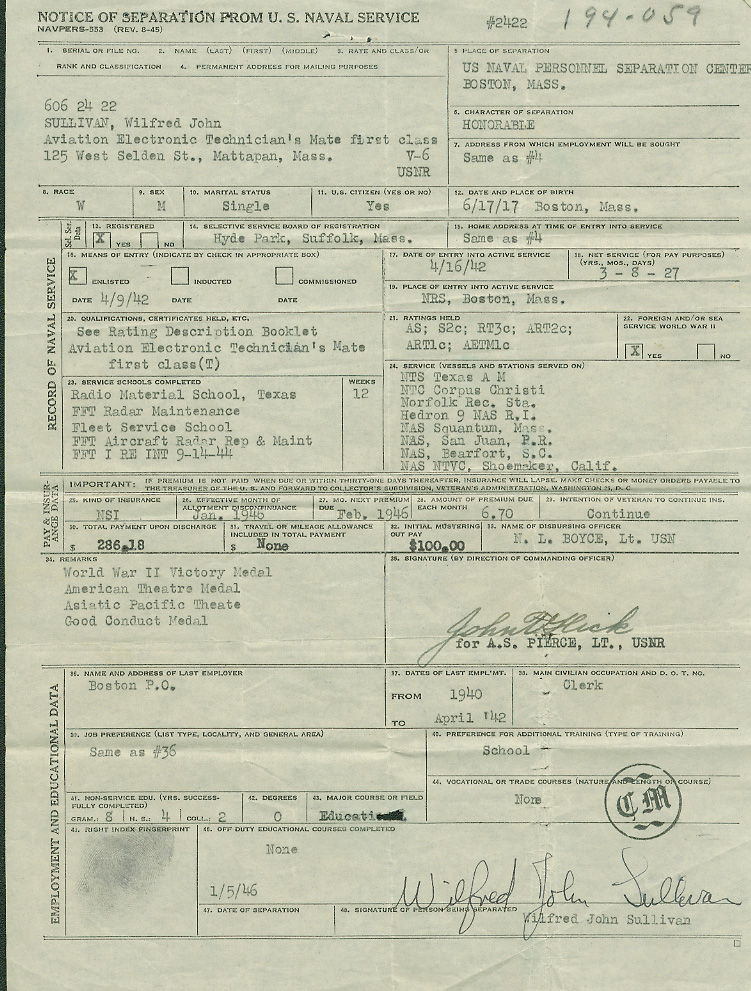 NOTICE OF SEPARATION FROM U. S. NAVAL SERVICE
NAVPERS-553 (REV. 8-45)
#2422
194-059
1. SERIAL OR FILE NO. 2. NAME (LAST) (FIRST) (MIDDLE) 3. RATE AND CLASS/OR
RANK AND CLASSIFICATION 4. PERMANENT ADDRESS FOR MAILING PURPOSES
606 24 22
SULLIVAN, Wilfred John
Aviation Electronic Technician's Mate first class
125 West Selden St., Mattapan, Mass. V-6
USNR
5 PLACE OF SEPARATION
US NAVAL PERSONNEL SEPARATION CENTER
BOSTON, MASS.
6. CHARACTER OF SEPARATION
HONORABLE
7. ADDRESS FROM WHICH EMPLOYMENT WILL BE SOUGHT
Same as #4
8. RACE
W
9. SEX
M
10. MARITAL STATUS
Single
11. U.S. CITIZEN (YES OR NO)
Yes
12. DATE AND PLACE OF BIRTH
6/17/17 Boston, Mass.
Sel. Ser. Data
13. REGISTERED
X YES NO
14. SELECTIVE SERVICE BOARD OF REGISTRATION
Hyde Park, Suffolk, Mass.
15. HOME ADDRESS AT TIME OF ENTRY INTO SERVICE
Same as #4
RECORD OF NAVAL SERVICE
16. MEANS OF ENTRY (INDICATE BY CHECK IN APPROPRIATE BOX)
X ENLISTED INDUCTED COMMISSIONED
DATE 4/9/42 DATE DATE
17. DATE OF ENTRY INTO ACTIVE SERVICE
4/16/42
18. NET SERVICE (FOR PAY PURPOSES)
(YRS., MOS., DAYS)
3 - 8 - 27
19. PLACE OF ENTRY INTO ACTIVE SERVICE
NRS, Boston, Mass.
20. QUALIFICATIONS, CERTIFICATES HELD, ETC.
See Rating Description Booklet
Aviation Electronic Technician's Mate
first class(T)
21. RATINGS HELD
AS; S2c; RT3c; ART2c;
ART1c; AETM1c
22. FOREIGN AND/OR SEA
SERVICE WORLD WAR II
X YES NO
23. SERVICE SCHOOLS COMPLETED WEEKS
Radio Material School, Texas 12
FFT Radar Maintenance
Fleet Service School
FFT Aircraft Radar Rep & Maint
FFT I RE INT 9-14-44
24. SERVICE (VESSELS AND STATIONS SERVED ON)
NTS Texas A M
NTC Corpus Christi
Norfolk Rec. Sta.
Hedron 9 NAS R.I.
NAS Squantum, Mass.
NAS, San Juan, P.R.
NAS, Bearfort, S.C.
NAS NTVC, Shoemaker, Calif.
PAY & INSURANCE DATA
IMPORTANT: IF PREMIUM IS NOT PAID WHEN DUE OR WITHIN THIRTY-ONE DAYS THEREAFTER, INSURANCE WILL LAPSE. MAKE CHECKS OR MONEY ORDERS PAYABLE TO
THE TREASURER OF THE U. S. AND FORWARD TO COLLECTOR'S SUBDIVISION, VETERAN'S ADMINISTRATION, WASHINGTON 25, D. C.
25. KIND OF INSURANCE
NSI
26. EFFECTIVE MONTH OF
ALLOTMENT DISCONTINUANCE
Jan. 1946
27. MO. NEXT PREMIUM
DUE
Feb. 1946
28. AMOUNT OF PREMIUM DUE
EACH MONTH
6.70
29. INTENTION OF VETERAN TO CONTINUE INS.
Continue
30. TOTAL PAYMENT UPON DISCHARGE
$ 286.18
31. TRAVEL OR MILEAGE ALLOWANCE
INCLUDED IN TOTAL PAYMENT
$ None
32. INITIAL MUSTERING
OUT PAY
$100.00
33. NAME OF DISBURSING OFFICER
N. L. BOYCE, Lt. USN
34. REMARKS
World War II Victory Medal
American Theatre Medal
Asiatic Pacific Theate
Good Conduct Medal
35. SIGNATURE (BY DIRECTION OF COMMANDING OFFICER)
for A.S. PIERCE, LT., USNR
EMPLOYMENT AND EDUCATIONAL DATA
36. NAME AND ADDRESS OF LAST EMPLOYER
Boston P.O.
37. DATES OF LAST EMPL'MT.
FROM 1940
TO April '42
38. MAIN CIVILIAN OCCUPATION AND D. O. T. NO.
Clerk
39. JOB PREFERENCE (LIST TYPE, LOCALITY, AND GENERAL AREA)
Same as #36
40. PREFERENCE FOR ADDITIONAL TRAINING (TYPE OF TRAINING)
School
41. NON-SERVICE EDU. (YRS. SUCCESS-
FULLY COMPLETED)
GRAM.: 8 H. S.: 4 COLL.: 2
42. DEGREES
0
43. MAJOR COURSE OR FIELD
44. VOCATIONAL OR TRADE COURSES (NATURE AND LENGTH OF COURSE)
None
CM
45. RIGHT INDEX FINGERPRINT
46. OFF DUTY EDUCATIONAL COURSES COMPLETED
None
1/5/46
47. DATE OF SEPARATION
48. SIGNATURE OF PERSON BEING SEPARATED
Wilfred John Sullivan
Wilfred John Sullivan